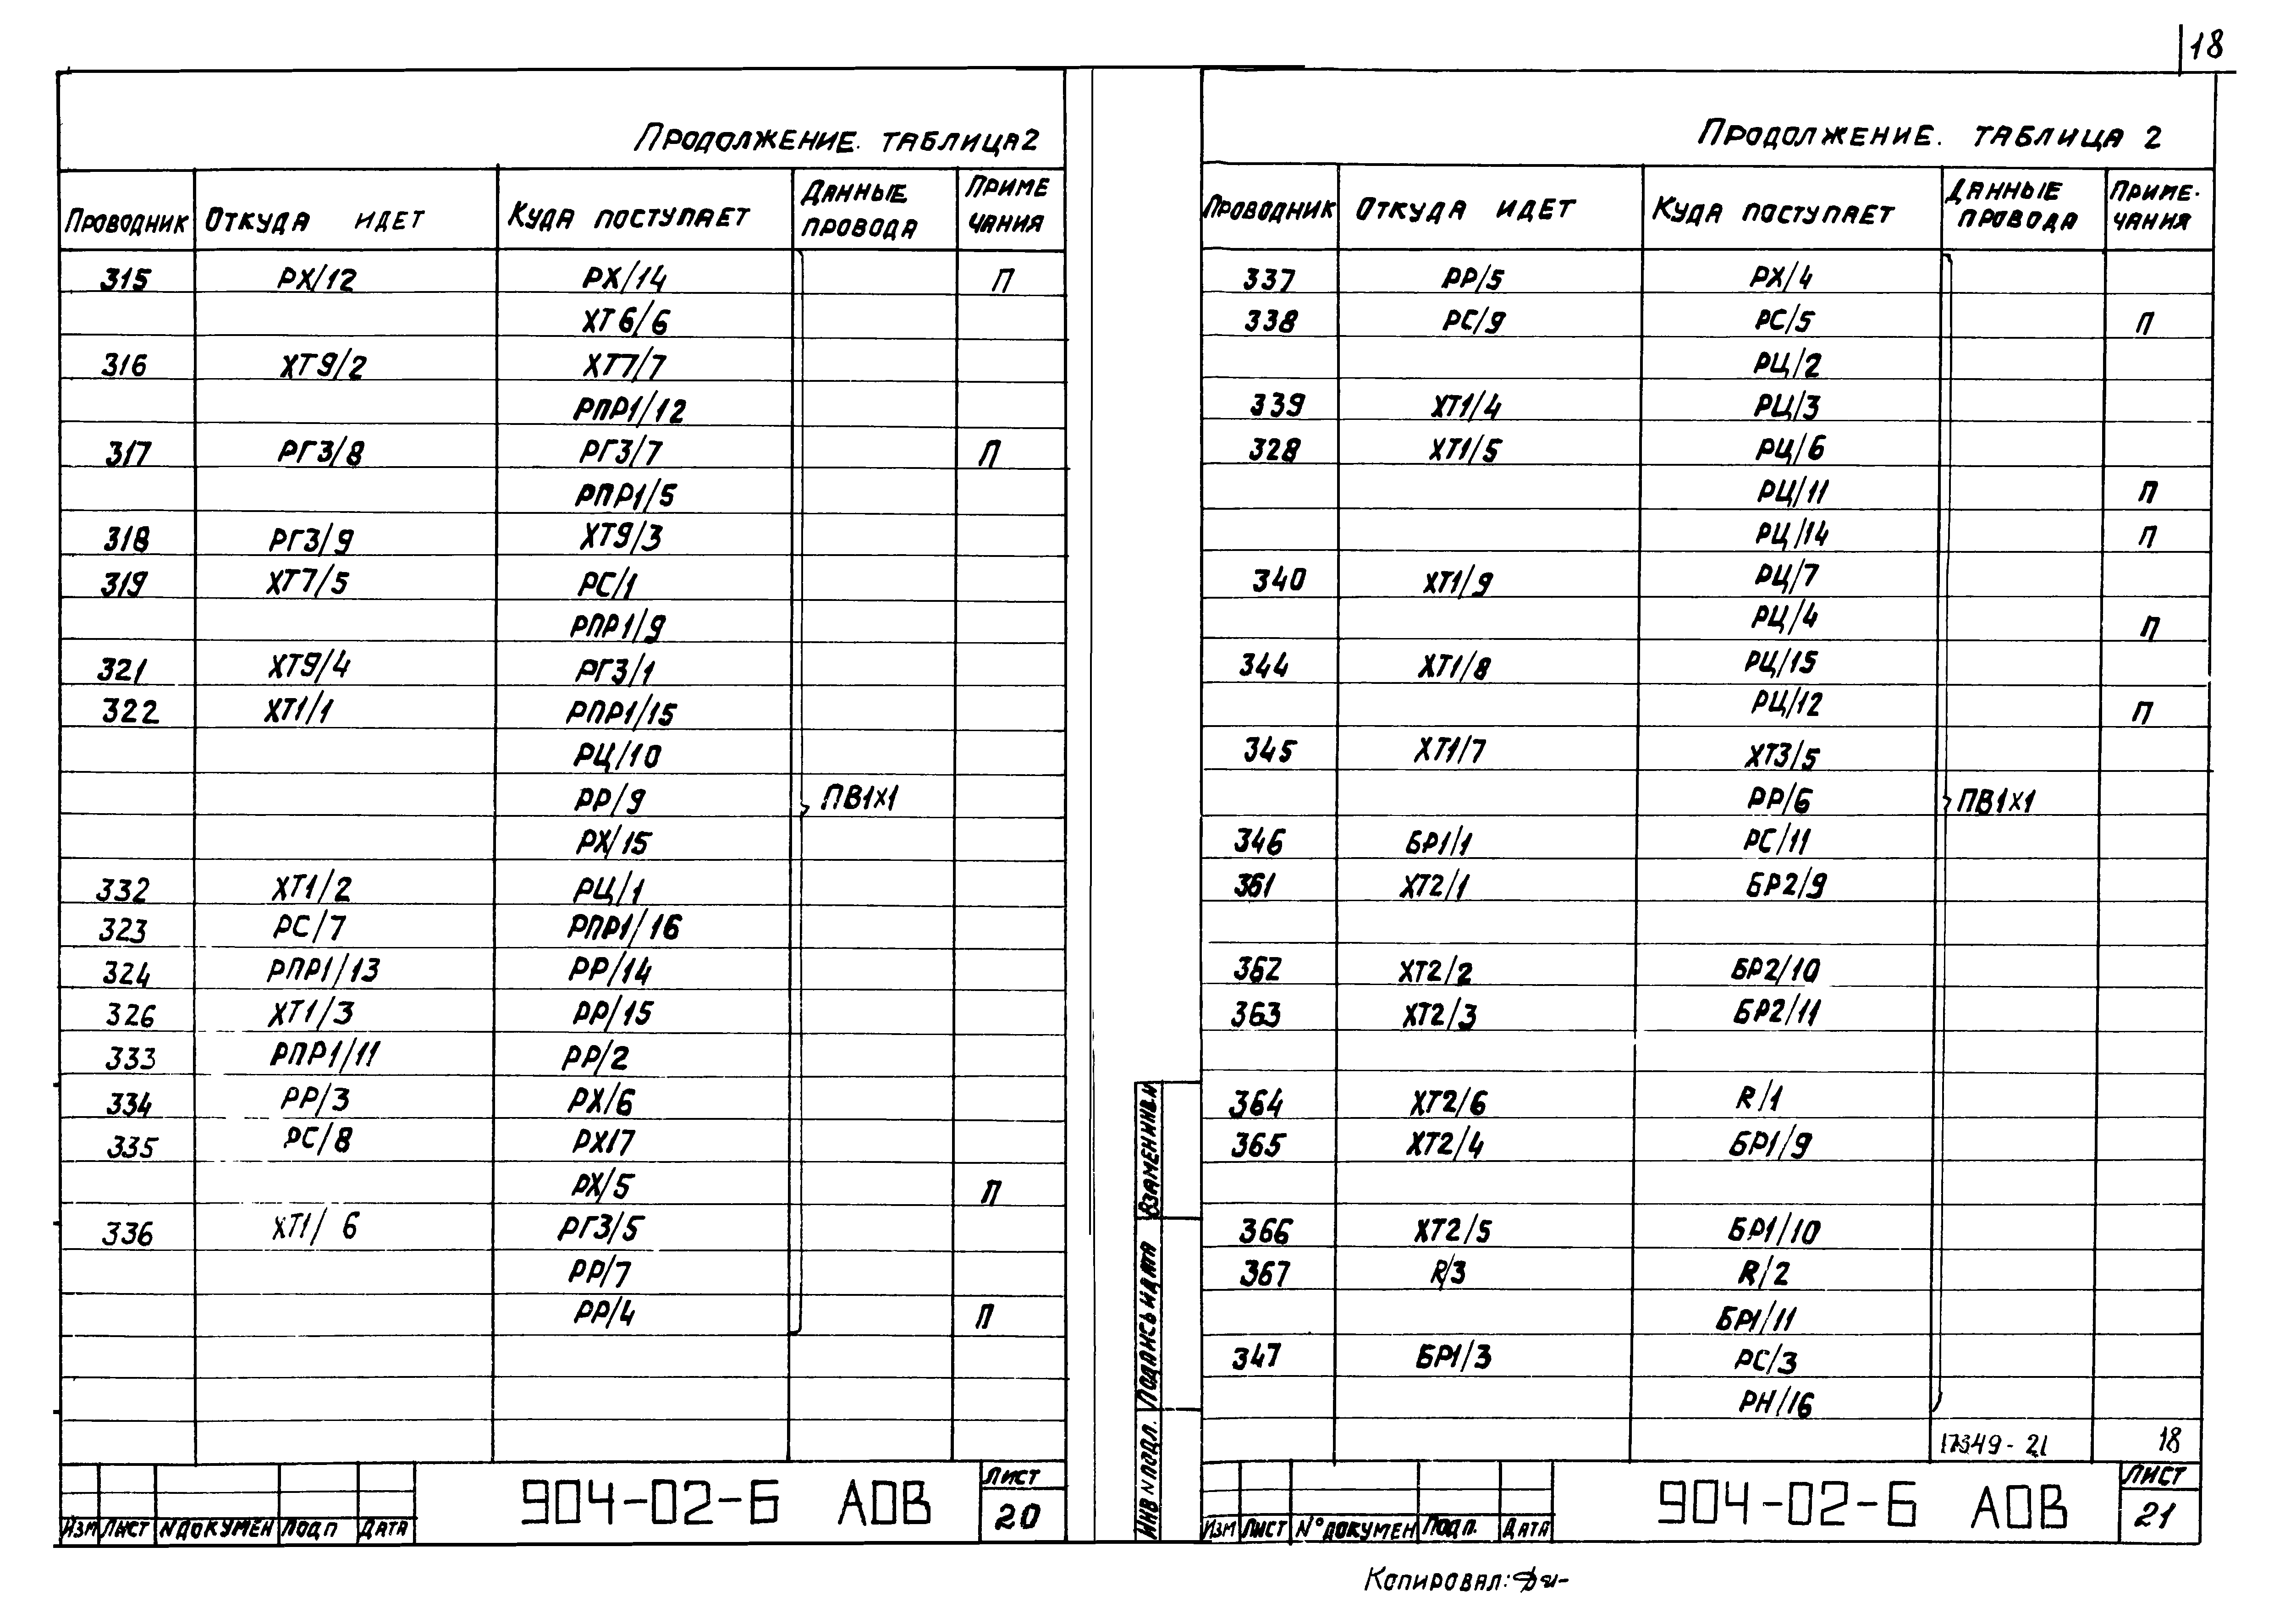 18
Продолжение. таблица 2
Проводник Откуда идет Куда поступает Данные провода Приме чания
315 РХ/12 РХ/14 П
ХТ6/6
316 ХТ9/2 ХТ7/7
РПР1/12
317 РГ3/8 РГ3/7 П
РПР1/5
318 РГ3/9 ХТ9/3
319 ХТ7/5 РС/1
РПР1/9
321 ХТ9/4 РГ3/1
322 ХТ1/1 РПР1/15
РЦ/10
РР/9 ПВ1х1
РХ/15
332 ХТ1/2 РЦ/1
323 РС/7 РПР1/16
324 РПР1/13 РР/14
326 ХТ1/3 РР/15
333 РПР1/11 РР/2
334 РР/3 РХ/6
335 РС/8 РХ/7
РХ/5 П
336 ХТ1/ 6 РГ3/5
РР/7
РР/4 П
Изм Лист № докумен Подп Дата
904-02-6 АОВ
Лист
20
Продолжение. таблица 2
Проводник Откуда идет Куда поступает Данные провода Приме-чания
337 РР/5 РХ/4
338 РС/9 РС/5 П
РЦ/2
339 ХТ1/4 РЦ/3
328 ХТ1/5 РЦ/6
РЦ/11 П
РЦ/14 П
340 ХТ1/9 РЦ/7
РЦ/4 П
344 ХТ1/8 РЦ/15
РЦ/12 П
345 ХТ1/7 ХТ3/5
РР/6 ПВ1х1
346 БР1/1 РС/11
361 ХТ2/1 БР2/9
362 ХТ2/2 БР2/10
363 ХТ2/3 БР2/11
364 ХТ2/6 R/1
365 ХТ2/4 БР1/9
366 ХТ2/5 БР1/10
367 R/3 R/2
БР1/11
347 БР1/3 РС/3
РН/16
17349-21 18
Изм Лист №докумен Подп. Дата
904-02-6 АОВ
Лист
21
Взамен инв.№
Подпись и дата
Инв № подл.
Копировал: